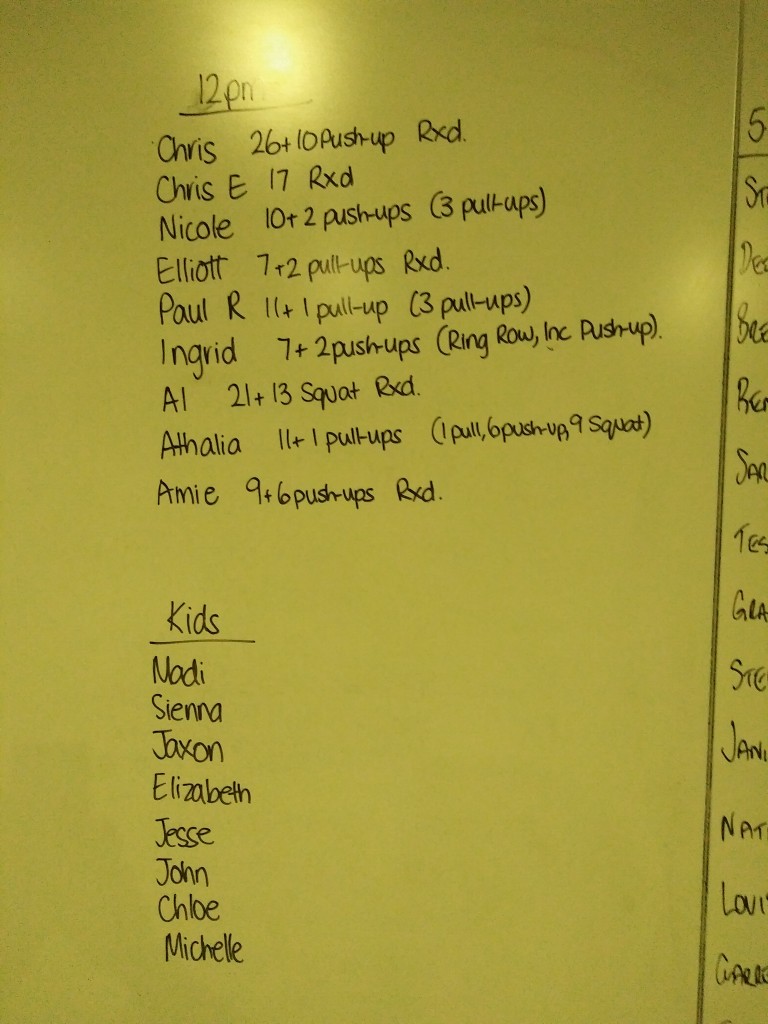 12pm
Chris 26+10 Push-up Rxd.
Chris E 17 Rxd
Nicole 10+2 push-ups (3 pull-ups)
Elliott 7+2 pull-ups Rxd.
Paul R 11+1 pull-up (3 pull-ups)
Ingrid 7+2 push-ups (Ring Row, Inc Push-up).
Al 21+13 Squat Rxd.
Athalia 11+1 pull-ups (1 pull, 6 push-up, 9 Squat)
Amie 9+6 push-ups Rxd.
Kids
Nadi
Sienna
Jaxon
Elizabeth
Jesse
John
Chloe
Michelle
5